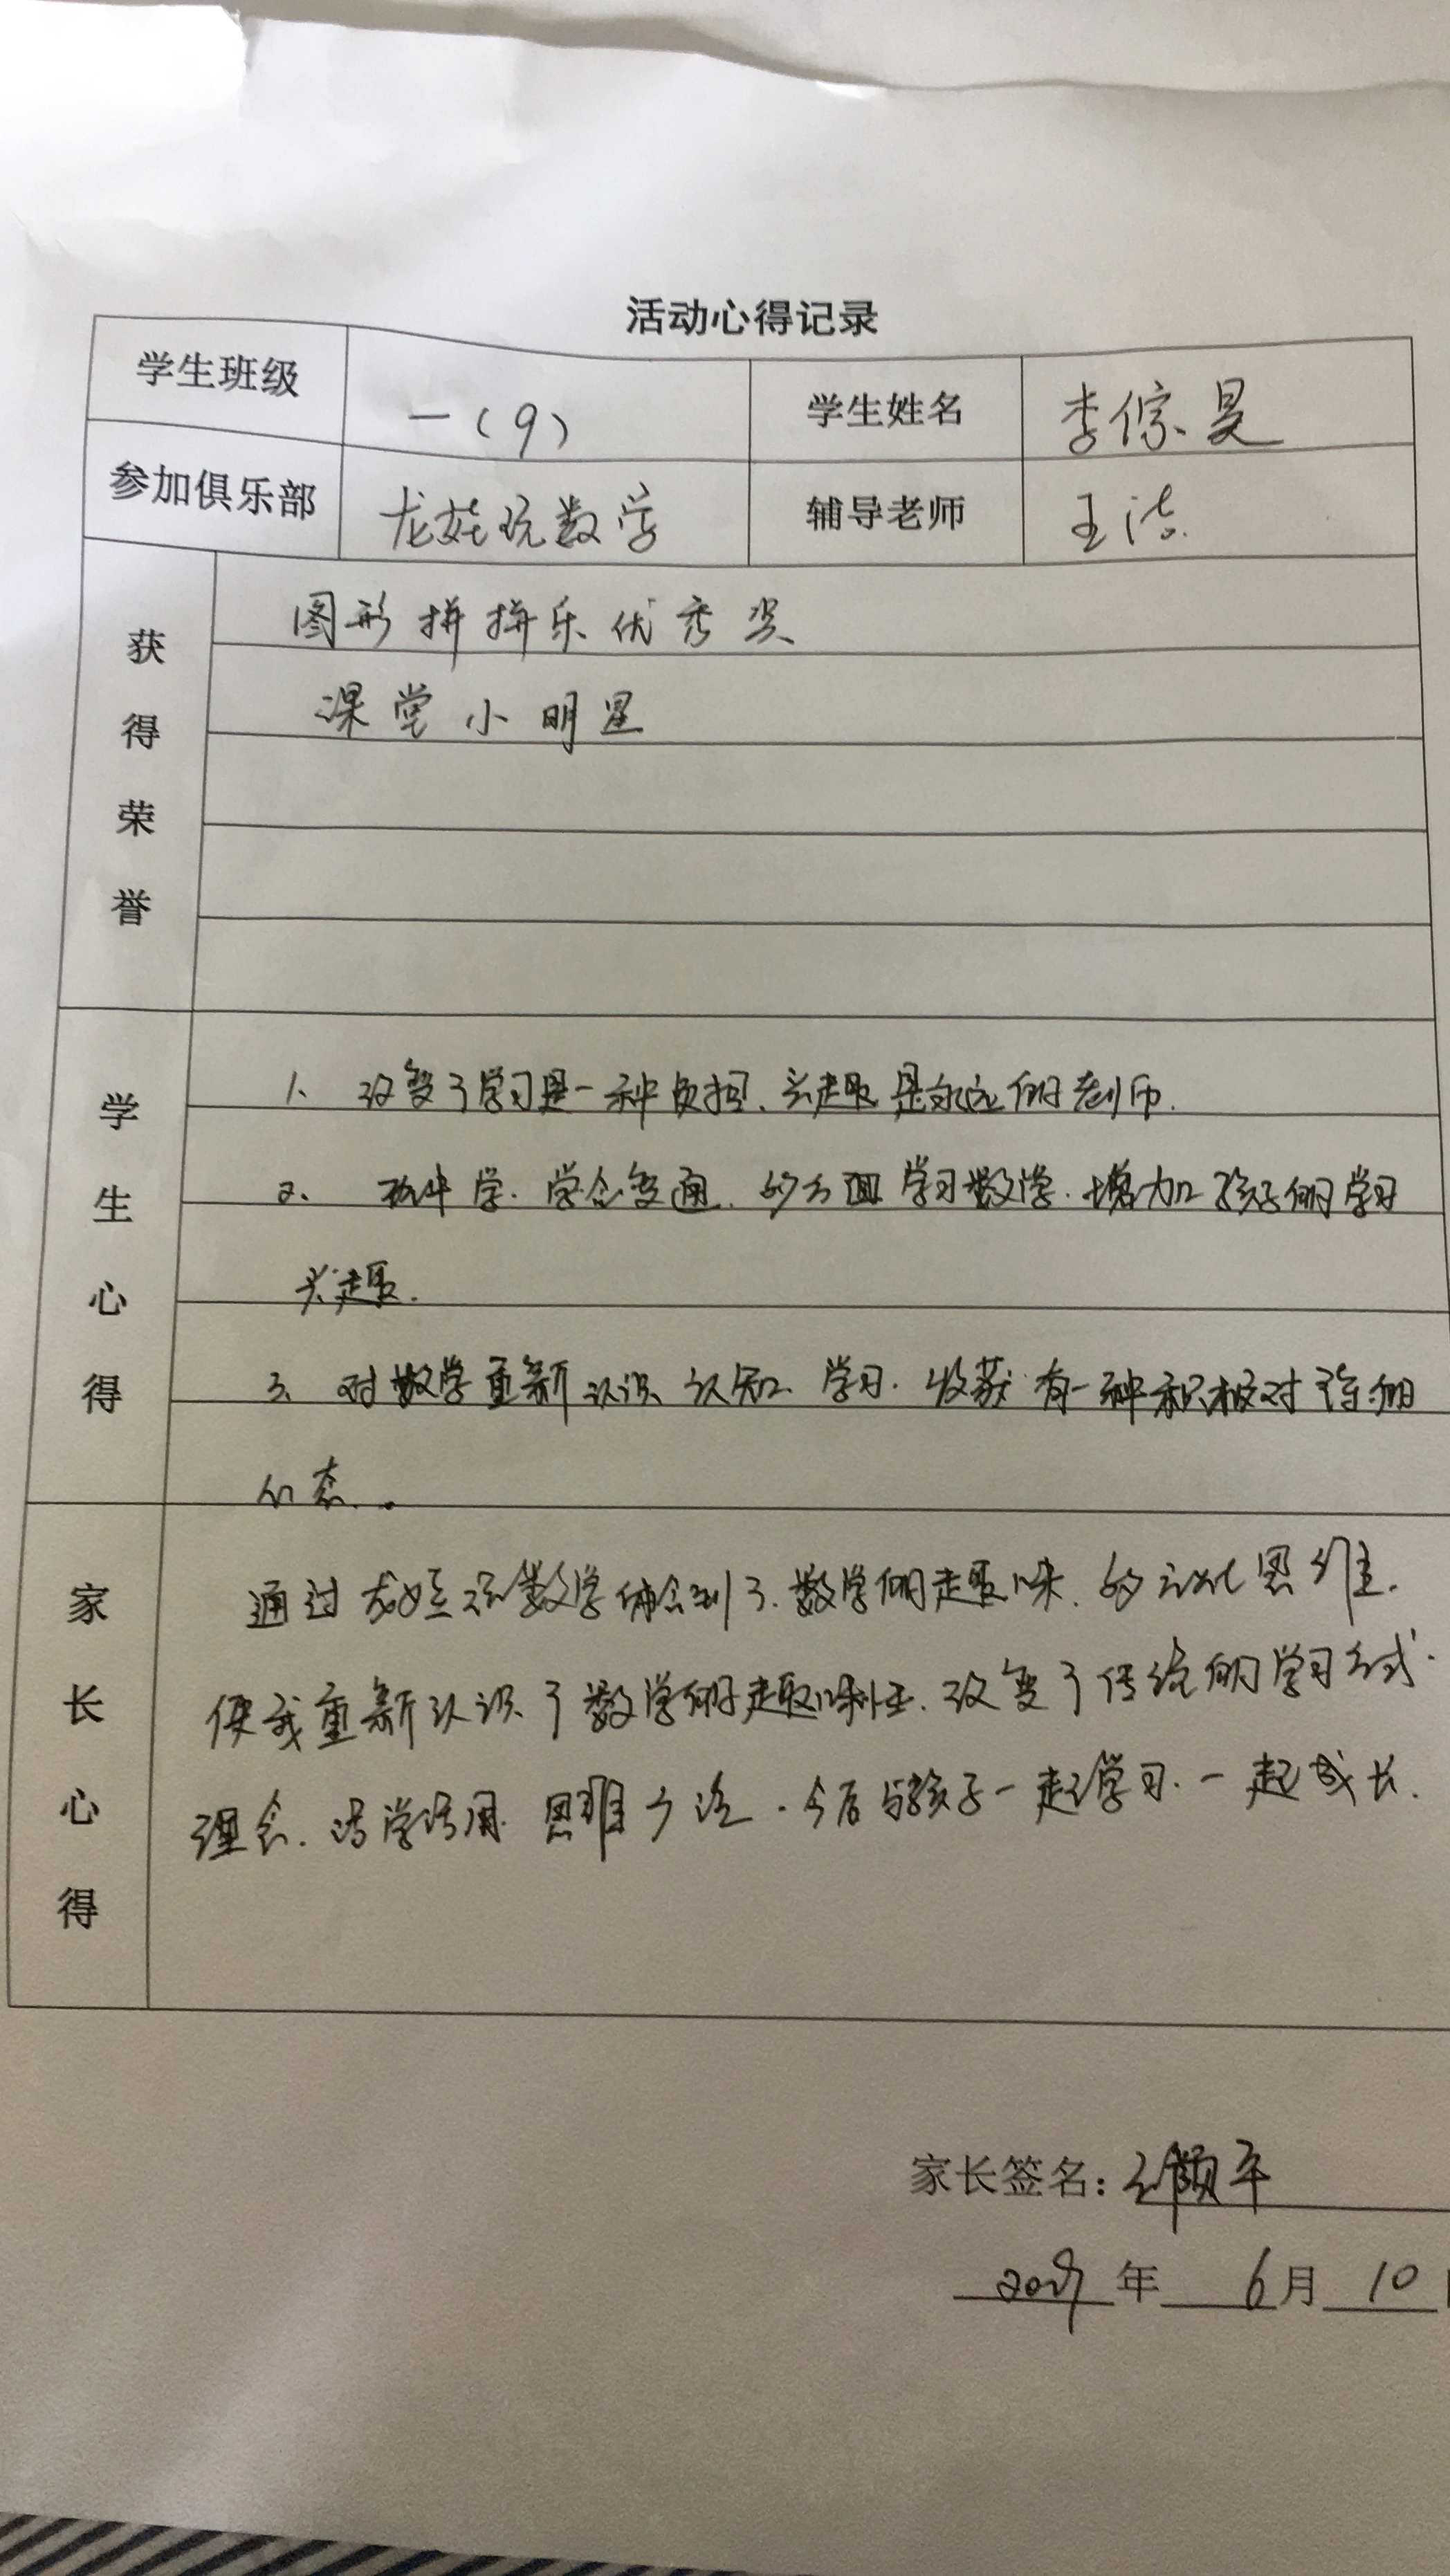 活动心得记录
学生班级 一(9) 学生姓名 李倧昊
参加俱乐部 龙娃玩数学 辅导老师 王洁
获得荣誉
图形拼拼乐优秀奖
课堂小明星
学生心得
1、改变了学习是一种负担、兴趣是永远的老师.
2、玩中学.学会变通、多方面学习数学.增加孩子的学习
兴趣.
3、对数学重新认识、认知、学习.收获有一种积极对待的
心态.
家长心得
通过龙娃玩数学体会到了.数学的趣味.多元化思维.
使我重新认识了数学的趣味性.改变了传统的学习方式.
理念.活学活用.思维.今后与孩子一起学习.一起成长.
家长签名:平
2019年6月10日